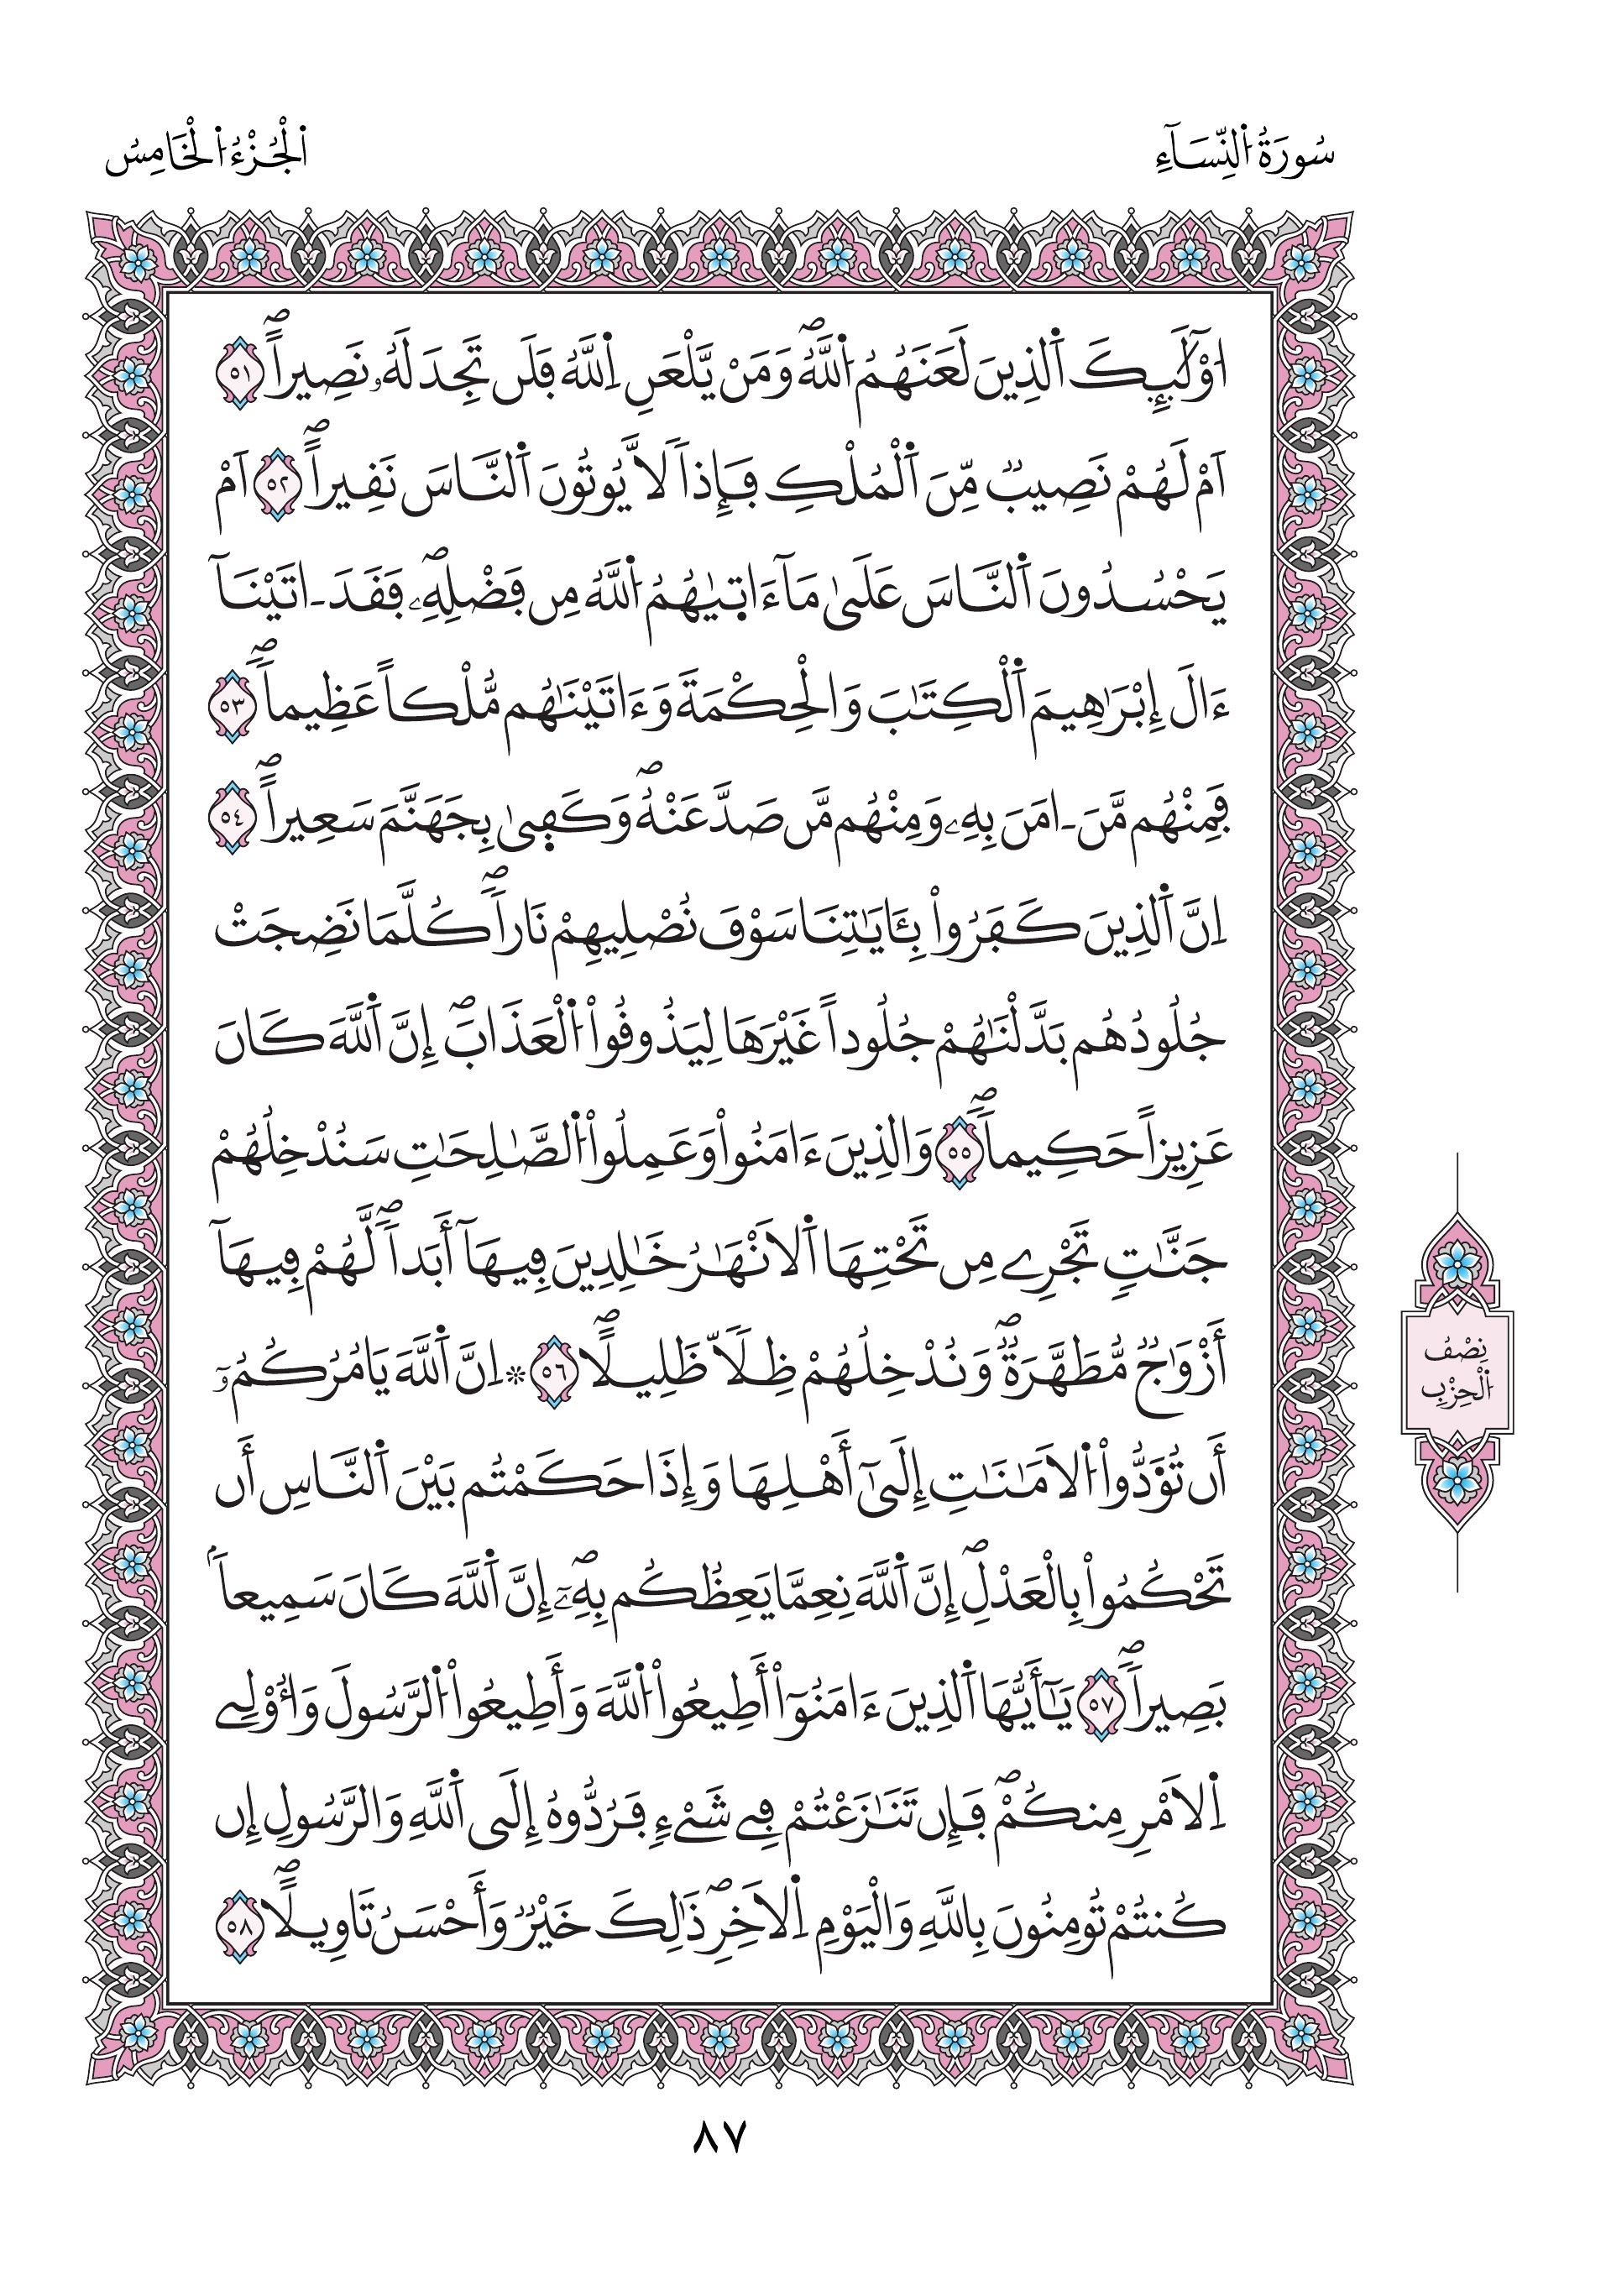 سُورَةُ اُ۬لنِّسَآءِ
اَ۬لْجُزْءُ اُ۬لْخَامِسُ
ا۟وْلَٰٓئِكَ اَ۬لذِينَ لَعَنَهُمُ اُ۬للَّهُۖ وَمَنْ يَّلْعَنِ اِ۬للَّهُ فَلَن تَجِدَ لَهُۥ نَصِيراًۖ ٥١
اَمْ لَهُمْ نَصِيبٞ مِّنَ اَ۬لْمُلْكِ فَإِذاٗ لَّا يُوتُونَ اَ۬لنَّاسَ نَقِيراًۖ ٥٢ اَمْ
يَحْسُدُونَ اَ۬لنَّاسَ عَلَىٰ مَآ ءَات۪يٰهُمُ اُ۬للَّهُ مِن فَضْلِهِۦۖ فَقَدَ ـ اتَيْنَآ
ءَالَ إِبْرَٰهِيمَ اَ۬لْكِتَٰبَ وَالْحِكْمَةَ وَءَاتَيْنَٰهُم مُّلْكاً عَظِيماٗۖ ٥٣
فَمِنْهُم مَّنَ ـ امَنَ بِهِۦ وَمِنْهُم مَّن صَدَّ عَنْهُۖ وَكَف۪ىٰ بِجَهَنَّمَ سَعِيراًۖ ٥٤
اِنَّ اَ۬لذِينَ كَفَرُواْ بِـَٔايَٰتِنَا سَوْفَ نُصْلِيهِمْ نَاراٗۖ كُلَّمَا نَضِجَتْ
جُلُودُهُم بَدَّلْنَٰهُمْ جُلُوداً غَيْرَهَا لِيَذُوقُواْ اُ۬لْعَذَابَۖ إِنَّ اَ۬للَّهَ كَانَ
عَزِيزاً حَكِيماٗۖ ٥٥ وَالذِينَ ءَامَنُواْ وَعَمِلُواْ اُ۬لصَّٰلِحَٰتِ سَنُدْخِلُهُمْ
جَنَّٰتٖ تَجْرِے مِن تَحْتِهَا اَ۬لَانْهَٰرُ خَٰلِدِينَ فِيهَآ أَبَداٗۖ لَّهُمْ فِيهَآ
أَزْوَٰجٞ مُّطَهَّرَةٞۖ وَنُدْخِلُهُمْ ظِلّاٗ ظَلِيلاًۖ ٥٦ ۞ اِنَّ اَ۬للَّهَ يَامُرُكُمُۥٓ
أَن تُؤَدُّواْ اُ۬لَامَٰنَٰتِ إِلَىٰٓ أَهْلِهَا وَإِذَا حَكَمْتُم بَيْنَ اَ۬لنَّاسِ أَن
تَحْكُمُواْ بِالْعَدْلِۖ إِنَّ اَ۬للَّهَ نِعِمَّا يَعِظُكُم بِهِۦٓۖ إِنَّ اَ۬للَّهَ كَانَ سَمِيعاَۢ
بَصِيراٗۖ ٥٧ يَٰٓأَيُّهَا اَ۬لذِينَ ءَامَنُوٓاْ أَطِيعُواْ اُ۬للَّهَ وَأَطِيعُواْ اُ۬لرَّسُولَ وَأُوْلِے
اِ۬لَامْرِ مِنكُمْۖ فَإِن تَنَٰزَعْتُمْ فِے شَےْءٖ فَرُدُّوهُ إِلَى اَ۬للَّهِ وَالرَّسُولِ إِن
كُنتُمْ تُومِنُونَ بِاللَّهِ وَالْيَوْمِ اِ۬لَاخِرِۖ ذَٰلِكَ خَيْرٞ وَأَحْسَنُ تَاوِيلاًۖ ٥٨
نِصْفُ
اُ۬لْحِزْبِ
٨٧